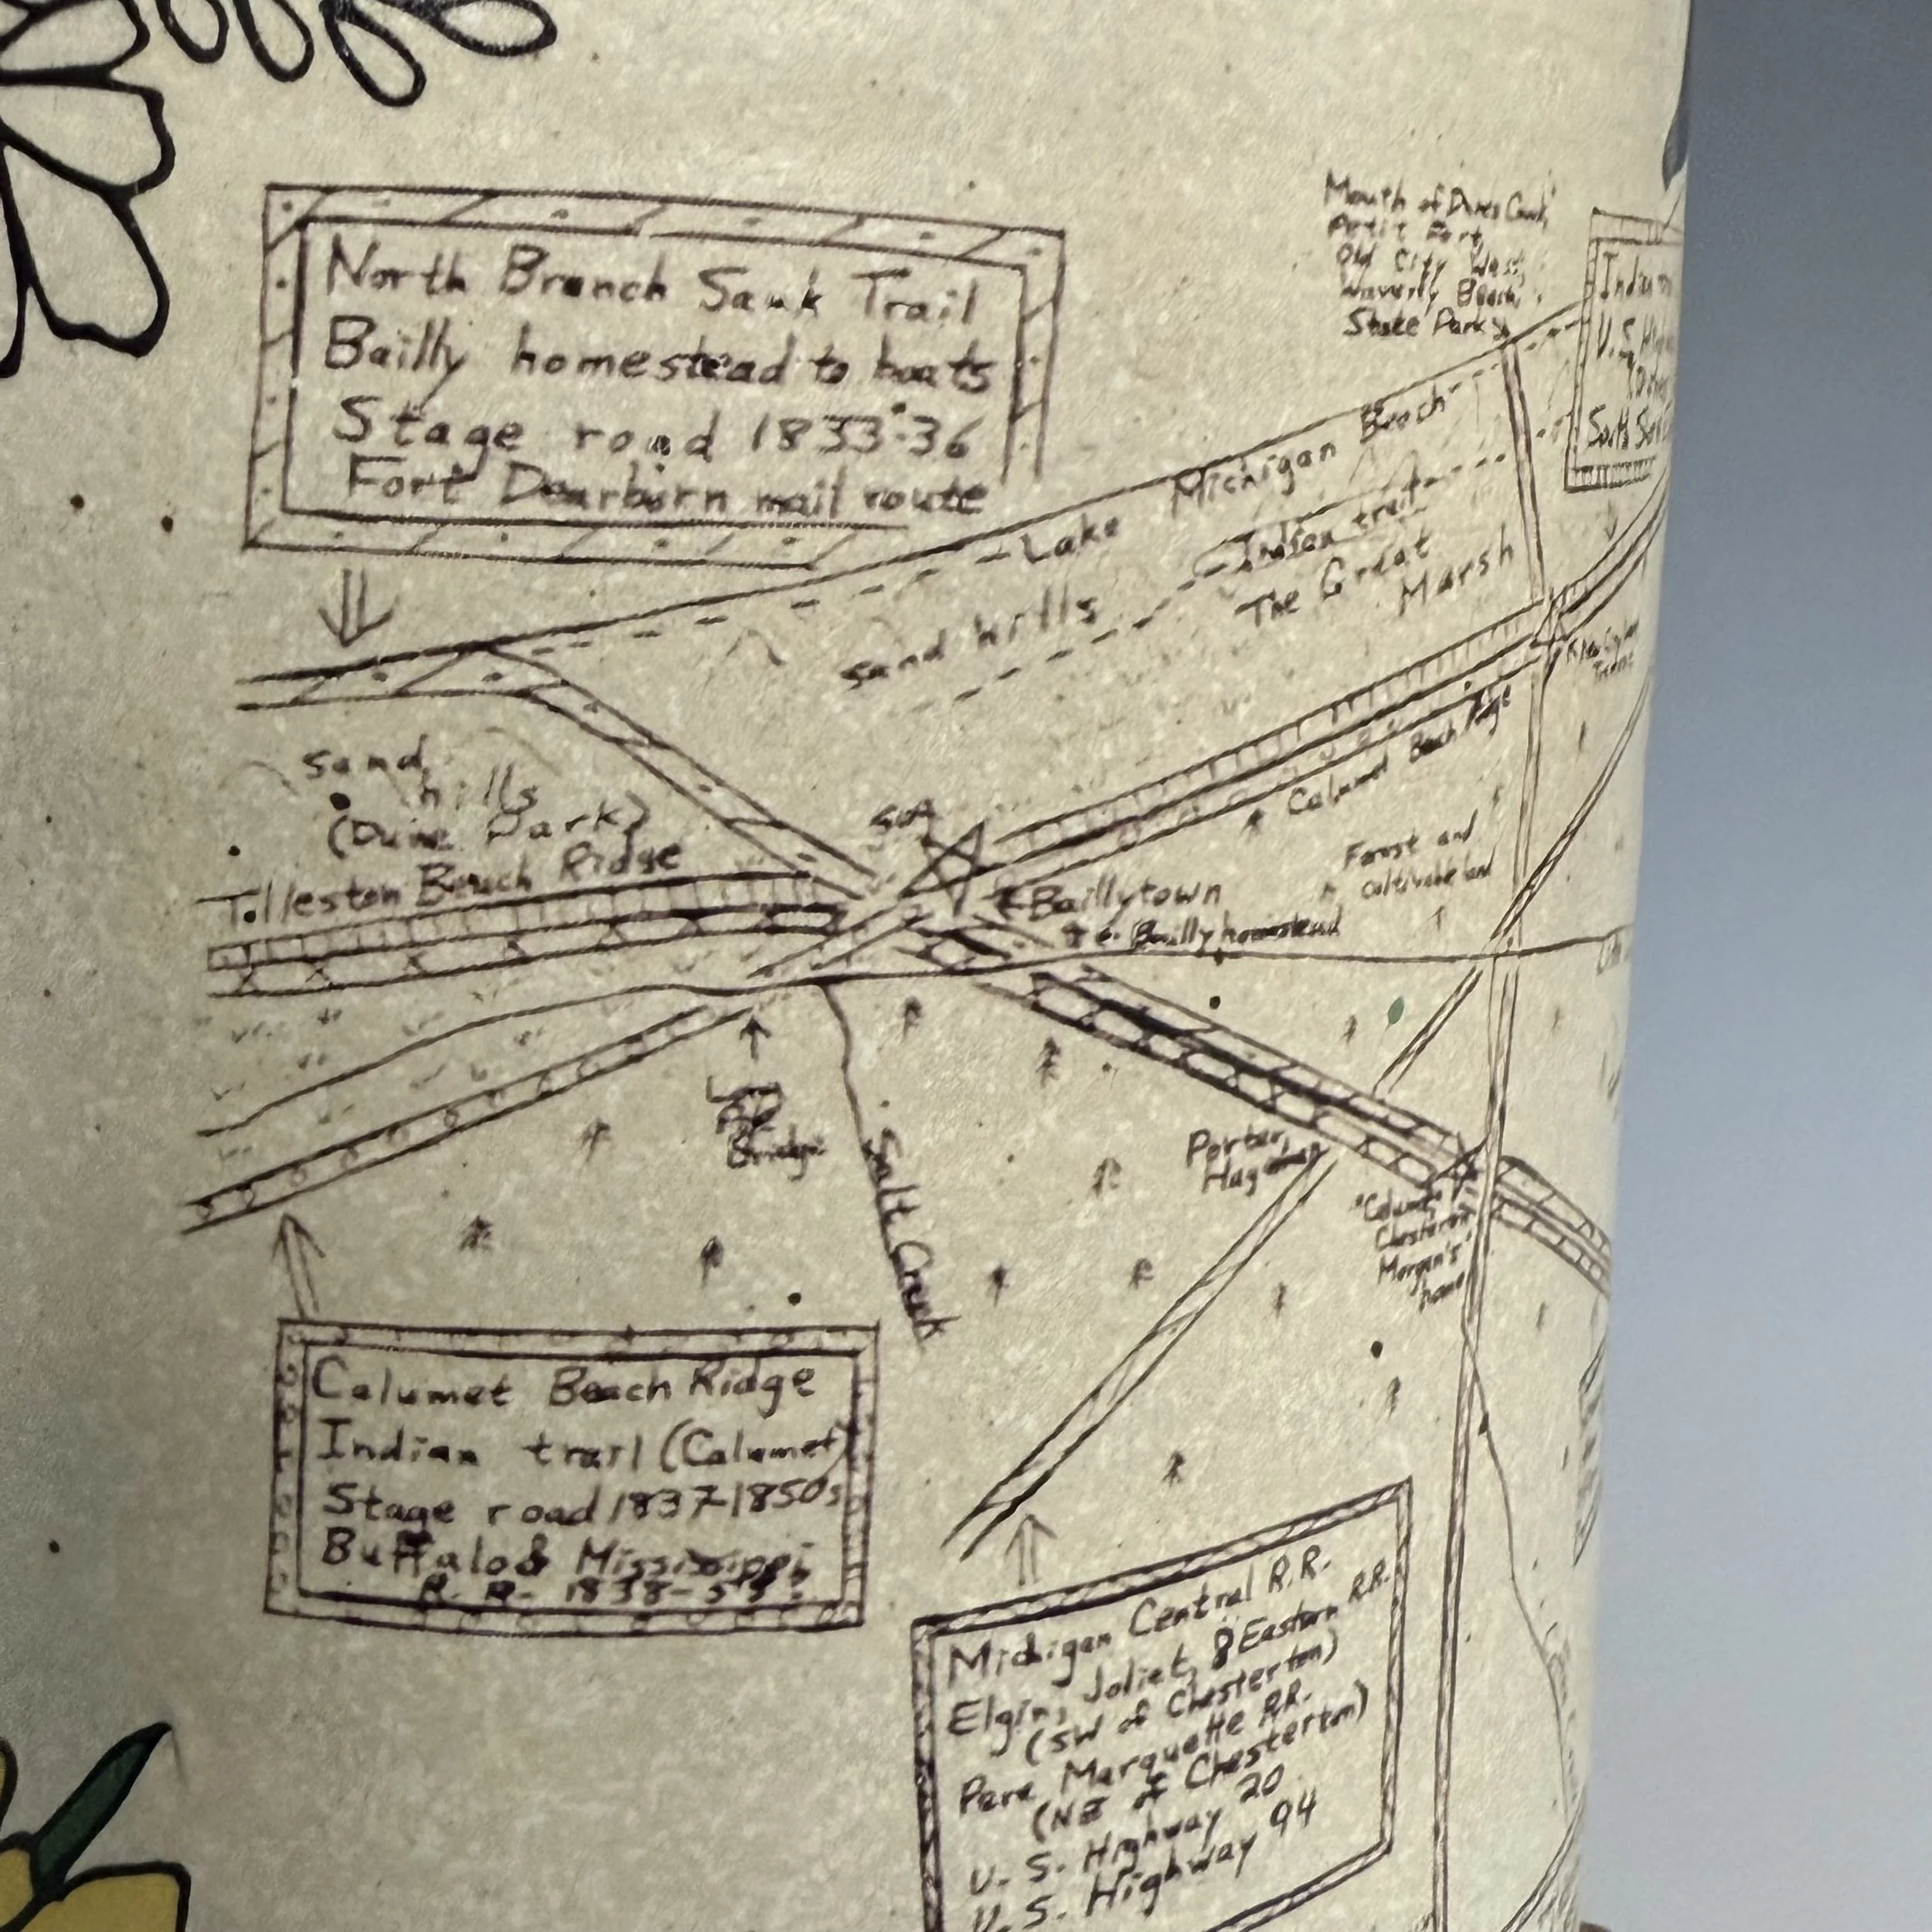 North Branch Sauk Trail
Bailly homestead to boats
Stage road 1833-36
Fort Dearborn mail route
Mouth of Dunes Creek,
Petit Fort,
Old City West,
Waverly Beach,
State Park
Indian
U.S.
South
Lake Michigan Beach
Indian trail
Sand hills
The Great
Marsh
Sand
hills
(Dune Park)
Tolleston Beach Ridge
Calumet Beach Ridge
Forest and
cultivable land
Baillytown
Bailly homestead
Bridge
Salt Creek
Porter,
Hageman
"Calumet"
Chesterton
Morgan's
home
Calumet Beach Ridge
Indian trail (Calumet)
Stage road 1837-1850s
Buffalo & Mississippi
R. R. 1838-
Michigan Central R.R.
Elgin, Joliet, & Eastern R.R.
(SW of Chesterton)
Pere Marquette R.R.
(NE of Chesterton)
U. S. Highway 20
U. S. Highway 94